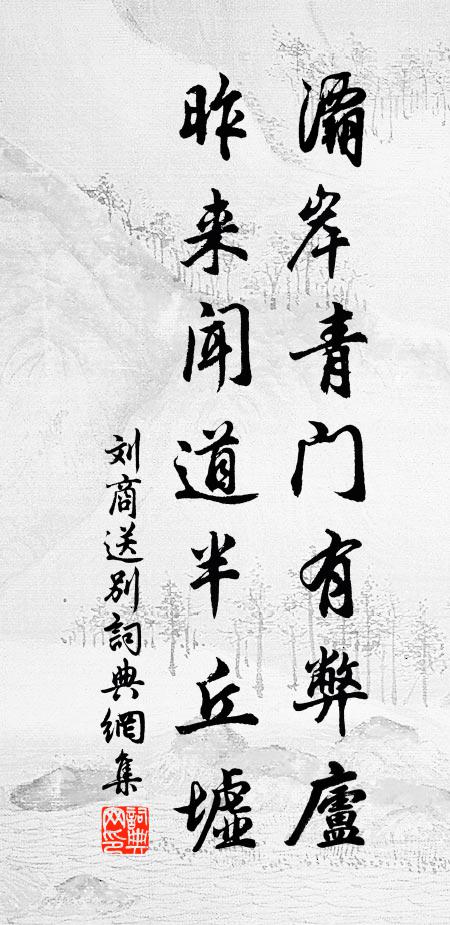 灞岸青门有弊廬
昨来闻道半丘墟
刘商送别詞典網集
詞典网印